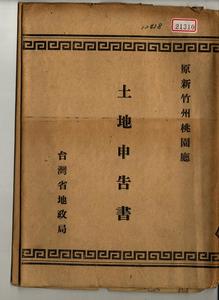 21310
原新竹州桃園廳
土地申告書
台灣省地政局